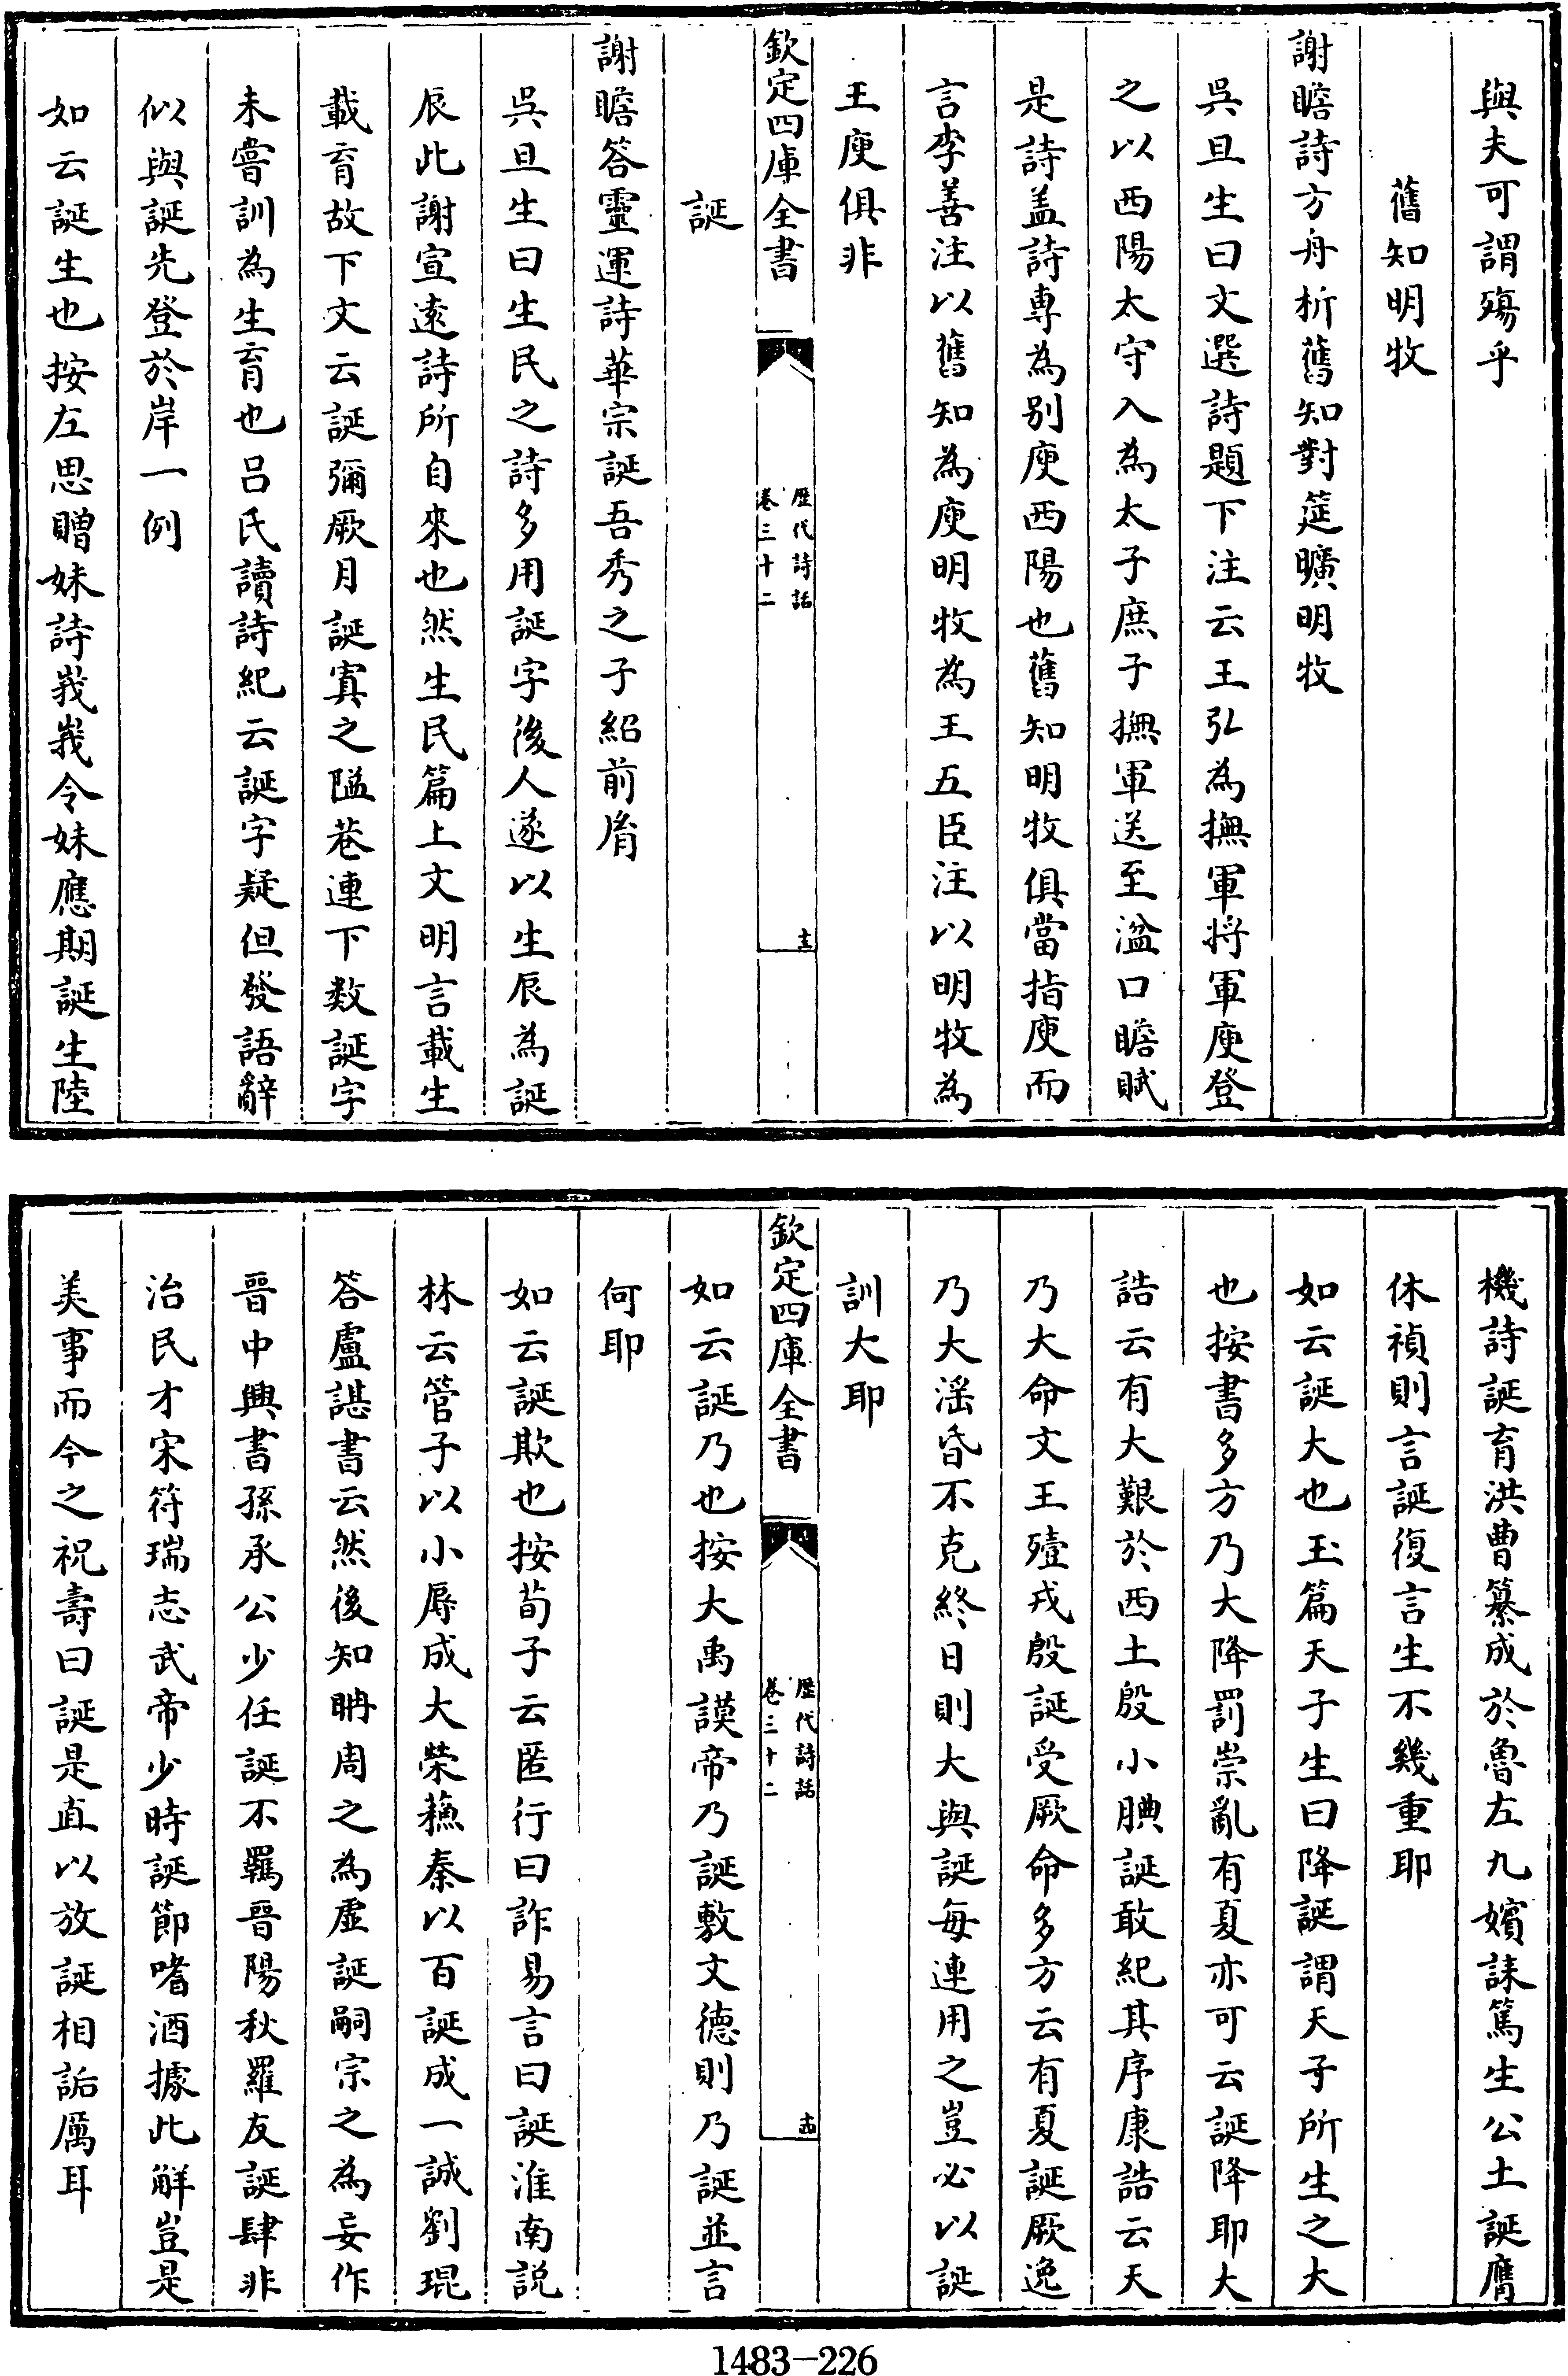 與夫可謂殤乎
舊知明牧
謝瞻詩方舟析舊知對筵曠明牧
吳旦生曰文選詩題下注云王弘為撫軍將軍庾登
之以西陽太守入為太子庶子撫軍送至湓口瞻賦
是詩蓋詩專為别庾西陽也舊知明牧俱當指庾而
言李善注以舊知為庾明牧為王五臣注以明牧為
王庾俱非
欽定四庫全書
歷代詩話
卷三十二
十三
誕
謝瞻答靈運詩華宗誕吾秀之子紹前𦙍
吳旦生曰生民之詩多用誕字後人遂以生辰為誕
辰此謝宣遠詩所自來也然生民篇上文明言載生
載育故下文云誕彌厥月誕寘之隘巷連下数誕字
未嘗訓為生育也呂氏讀詩紀云誕字疑但發語辭
似與誕先登於岸一例
如云誕生也按左思贈妹詩峩峩令妹應期誕生陸
機詩誕育洪曹纂成於魯左九嬪誄篤生公土誕膺
休禎則言誕復言生不幾重耶
如云誕大也玉篇天子生曰降誕謂天子所生之大
也按書多方乃大降罰崇亂有夏亦可云誕降耶大
誥云有大艱於西土殷小腆誕敢紀其序康誥云天
乃大命文王殪戎殷誕受厥命多方云有夏誕厥逸
乃大淫昏不克終日則大與誕每連用之豈必以誕
訓大耶
欽定四庫全書
歷代詩話
卷三十二
十四
如云誕乃也按大禹謨帝乃誕敷文德則乃誕並言
何耶
如云誕欺也按荀子云匿行曰詐易言曰誕淮南説
林云管子以小辱成大榮蘓秦以百誕成一誠劉琨
答盧諶書云然後知聃周之為虛誕嗣宗之為妄作
晉中興書孫承公少任誕不羈晉陽秋羅友誕肆非
治民才宋符瑞志武帝少時誕節嗜酒據此解豈是
美事而今之祝壽曰誕是直以放誕相詬厲耳
1483-226